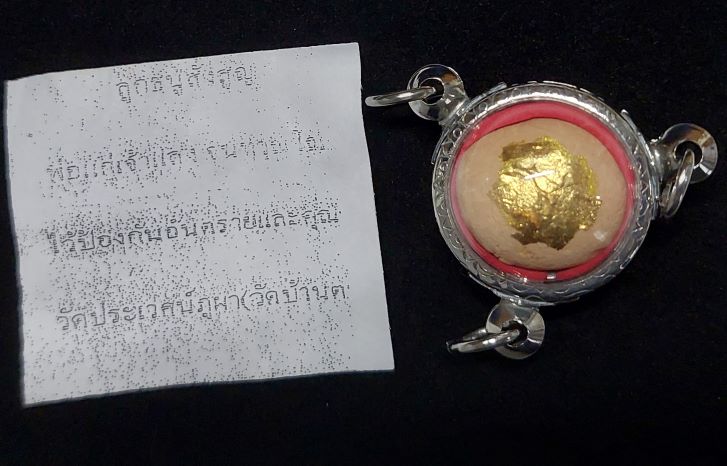 ลูกธนูสังสูญ
พ่อแก่เจ้าแดง
ไว้ป้องกันอันตรายและคุณ
วัดประเวศน์ภูผา(วัดบ้านต